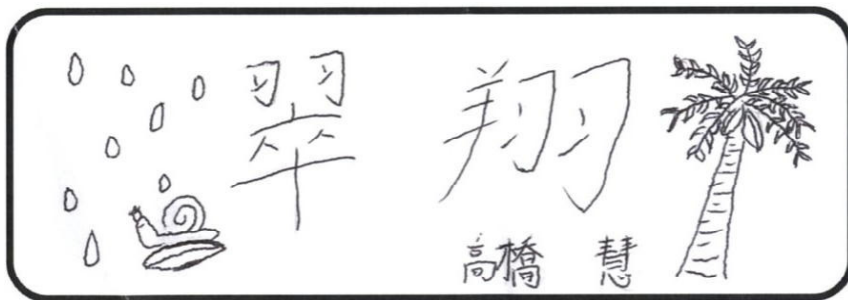 翠 翔
高橋 慧